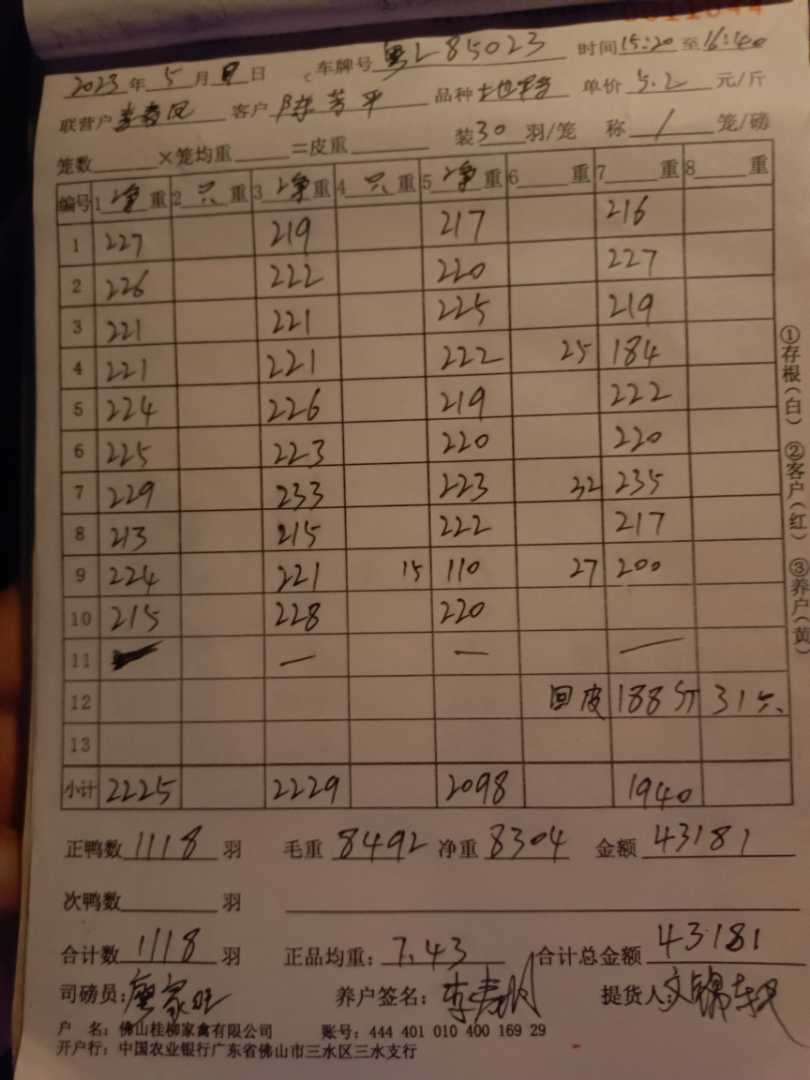 2023年5月 日 车牌号粤L85023 时间15:20至16:40
联营户 客户陈芳平 品种 单价5.2元/斤
笼数 ×笼均重 =皮重 装30羽/笼 称/笼/磅
编号 1净重 2只重 3净重 4只重 5净重 6 重 7 重 8 重
1 227 219 217 216
2 226 222 220 227
3 221 221 225 219
4 221 221 222 25 184
5 224 226 219 222
6 225 223 220 220
7 229 233 223 32 235
8 213 215 222 217
9 224 221 15 110 27 200
10 215 228 220
11 — — — —
12 回皮 188斤 31只
13
小计 2225 2229 2098 1940
正鸭数1118羽 毛重8492 净重8304 金额43181
次鸭数 羽
合计数1118羽 正品均重：7.43 合计总金额43181
司磅员：廖家旺 养户签名： 提货人
户 名：佛山桂柳家禽有限公司 账号：444 401 010 400 169 29
开户行：中国农业银行广东省佛山市三水区三水支行
①存根（白） ②客户（红） ③养户（黄）